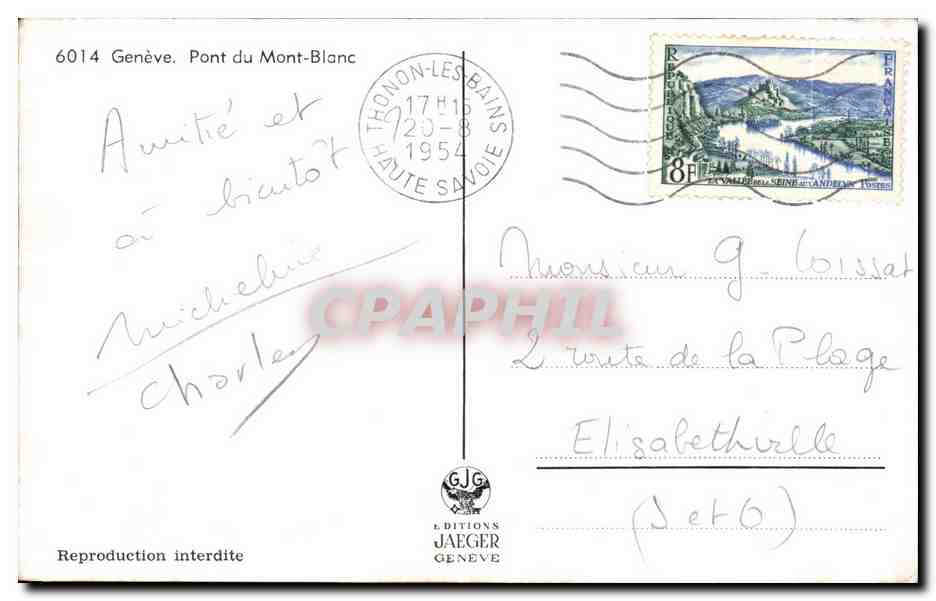 6014 Genève. Pont du Mont-Blanc
THONON-LES-BAINS
17H15
20-8
1954
HAUTE SAVOIE
REPUBLIQUE
FRANCAISE
8F
LA VALLÉE DE LA SEINE AUX ANDELYS POSTES
Amitié et
à bientôt
Micheline
Charles
Monsieur G. Loissat
2 route de la Plage
Elisabethville
(S et O)
CPAPHIL
GJG
EDITIONS
JAEGER
GENEVE
Reproduction interdite